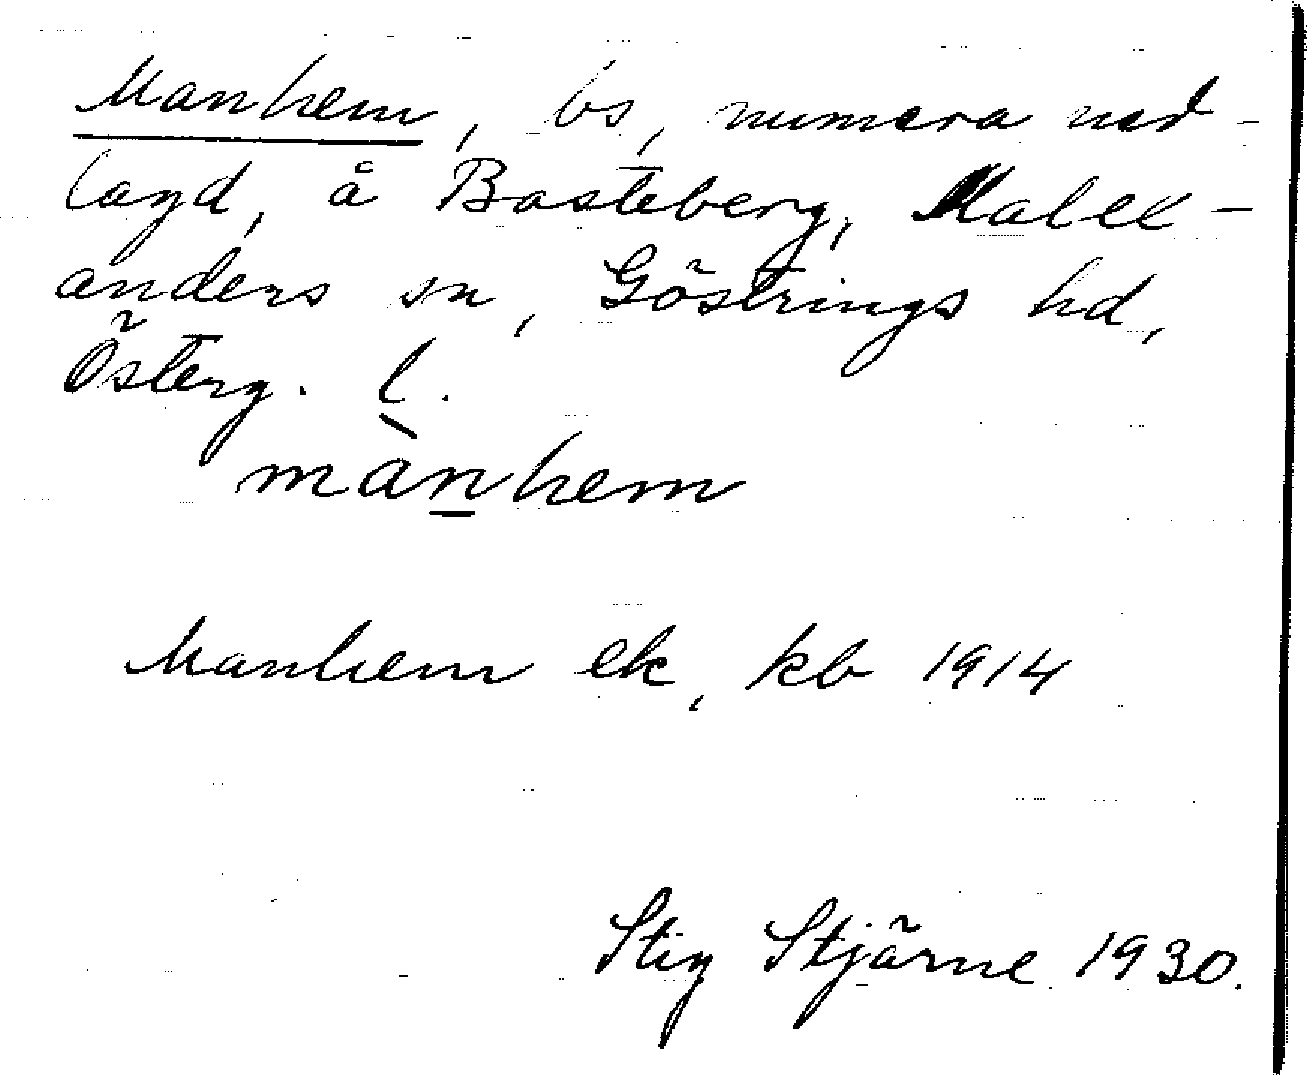 Manhem, bs, numera ned-
lagd, å Basteberg, Malex-
anders sn, Göstrings hd,
Österg. l.
mànhem
Manhem ek, kb 1914
Stig Stjärne 1930.